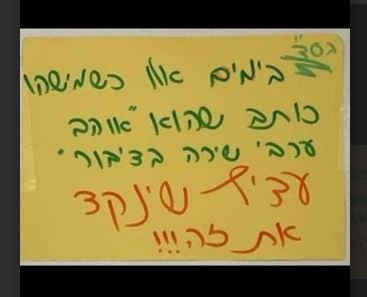 בסד"
בימים אלו כשמישהו
כותב שהוא "אוהב
ערבי שירה בציבור"
עדיף שינקד
את זה!!!